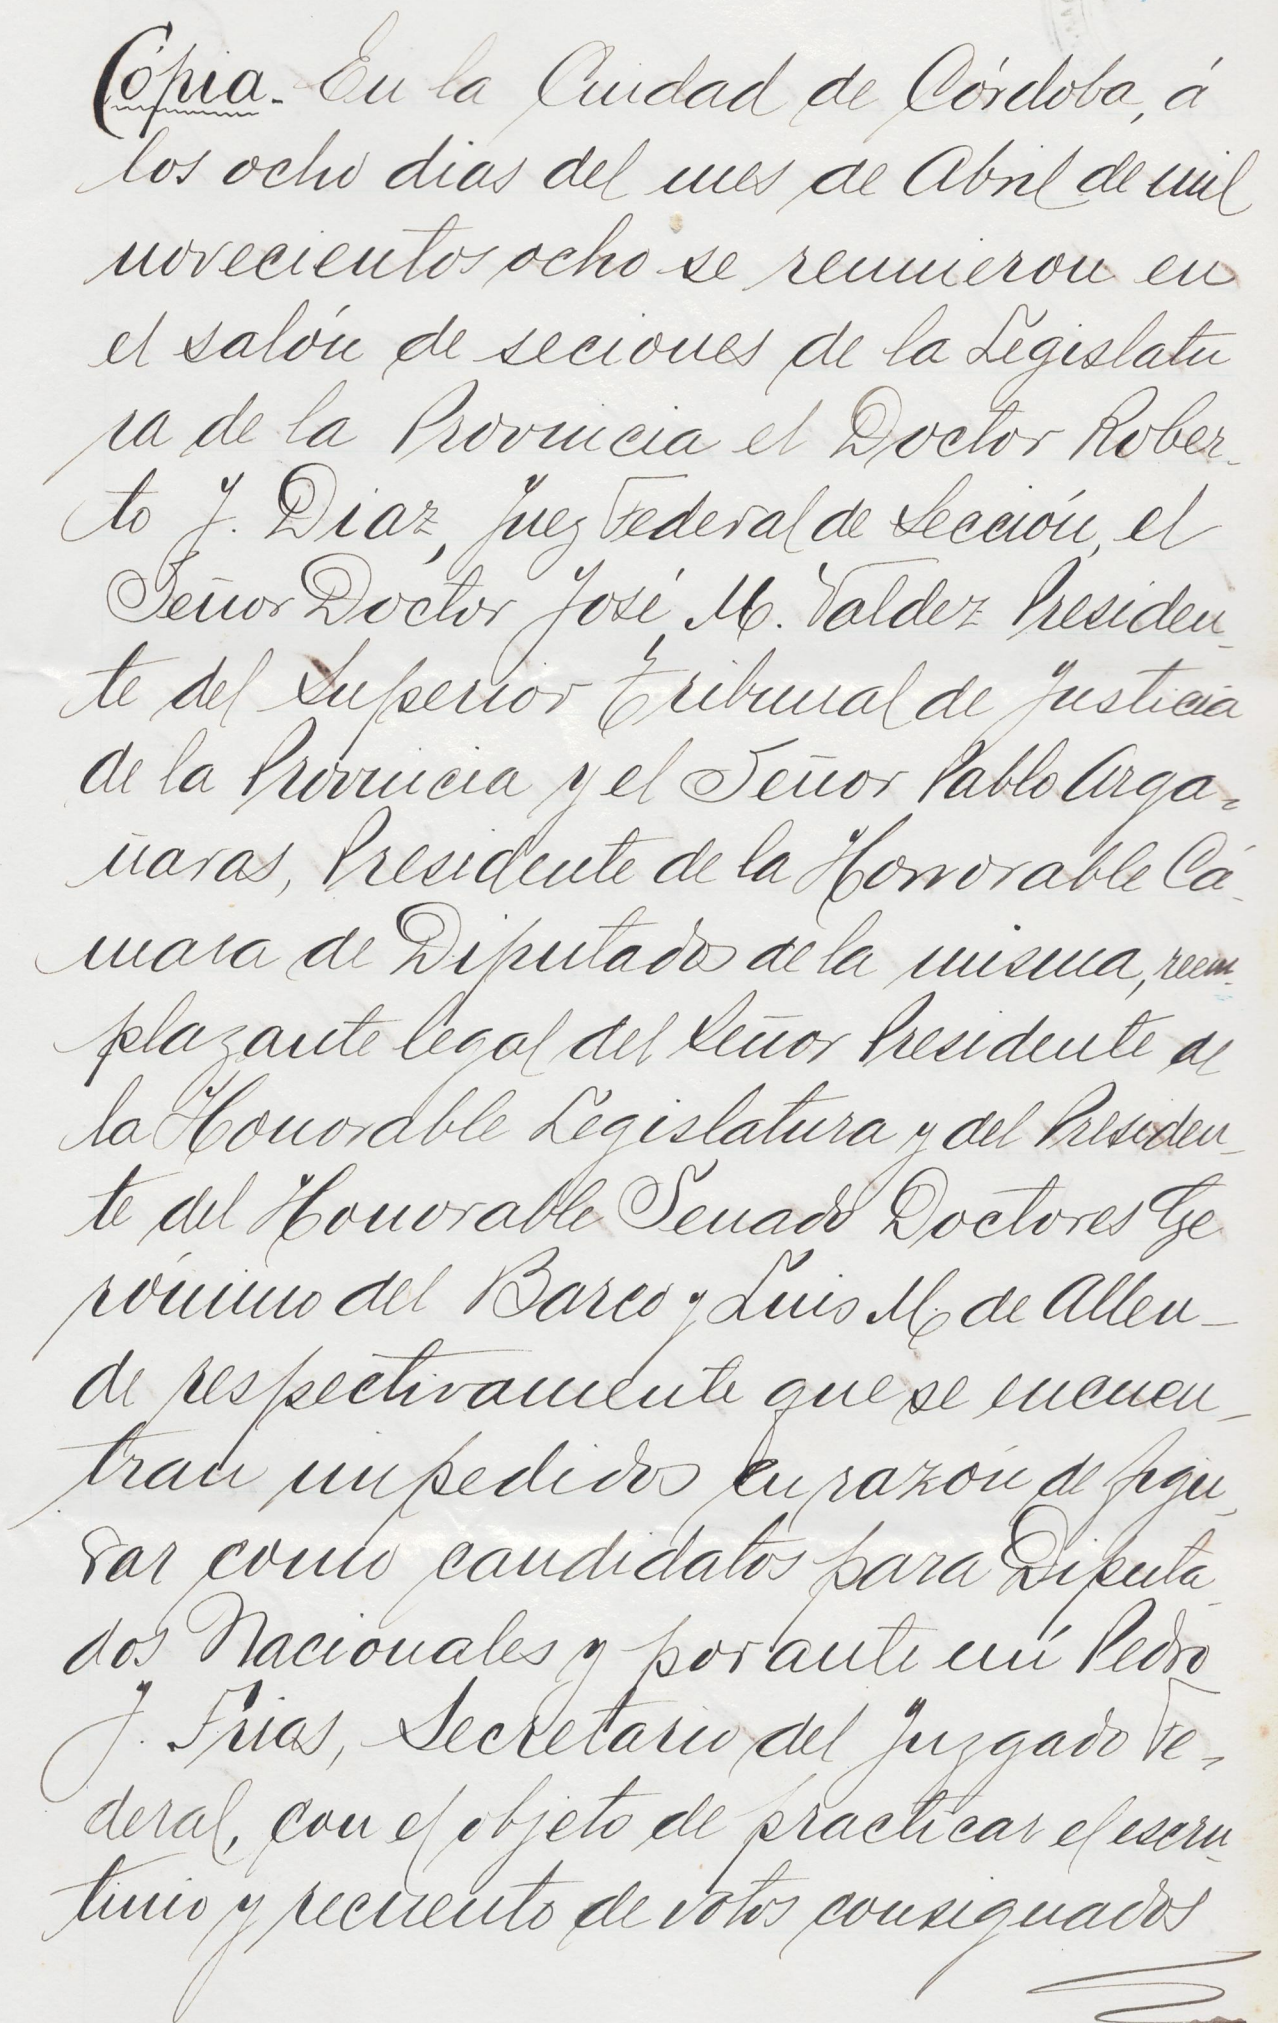 Cópia. En la Ciudad de Córdoba, á
los ocho dias del mes de Abril de mil
novecientos ocho se reunieron en
el salón de seciones de la Legislatu
ra de la Provincia el Doctor Rober-
to J. Diaz, Juez Federal de Sección, el
Señor Doctor José M. Valdez Presiden-
te del Superior Tribunal de Justicia
de la Provincia y el Señor Pablo Arga-
ñaras, Presidente de la Honorable Cá-
mara de Diputados de la misma, reem-
plazante legal del Señor Presidente de
la Honorable Legislatura y del Presiden-
te del Honorable Senado Doctores Ge
rónimo del Barco y Luis M. de Allen-
de respectivamente que se encuen-
tran impedidos en razón de figu-
rar como candidatos para Diputa
dos Nacionales y por ante mí Pedro
J. Frias, Secretario del Juzgado Fe-
deral, con el objeto de practicar el escru-
tinio y recuento de votos consignados